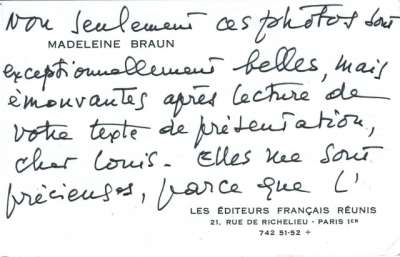 Non seulement ces photos sont
MADELEINE BRAUN
exceptionnellement belles, mais
émouvantes après lecture de
votre texte de présentation,
cher Louis. Elles me sont
précieuses, parce que l'
LES ÉDITEURS FRANÇAIS RÉUNIS
21, RUE DE RICHELIEU - PARIS 1ER
742 51-52 +